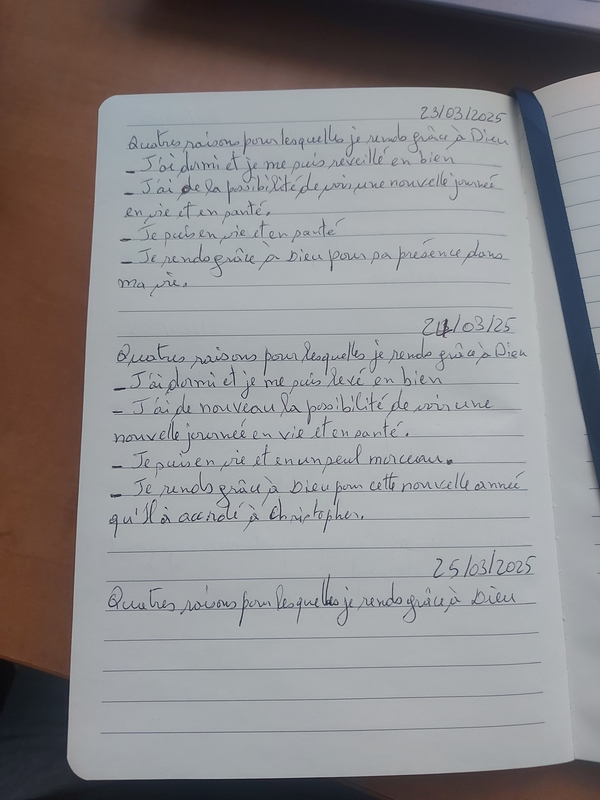 23/03/2025
Quatres raisons pour lesquelles je rends grâce à Dieu
- J'ai dormi et je me suis réveillé en bien
- J'ai de la possibilité de voir une nouvelle journée
en vie et en santé.
- Je suis en vie et en santé
- Je rends grâce à Dieu pour sa présence dans
ma vie.
24/03/25
Quatres raisons pour lesquelles je rends grâce à Dieu
- J'ai dormi et je me suis levé en bien
- J'ai de nouveau la possibilité de voir une
nouvelle journée en vie et en santé.
- Je suis en vie et en un seul morceau.
- Je rends grâce à Dieu pour cette nouvelle année
qu'Il à accordé à Christopher.
25/03/2025
Quatres raisons pour lesquelles je rends grâce à Dieu